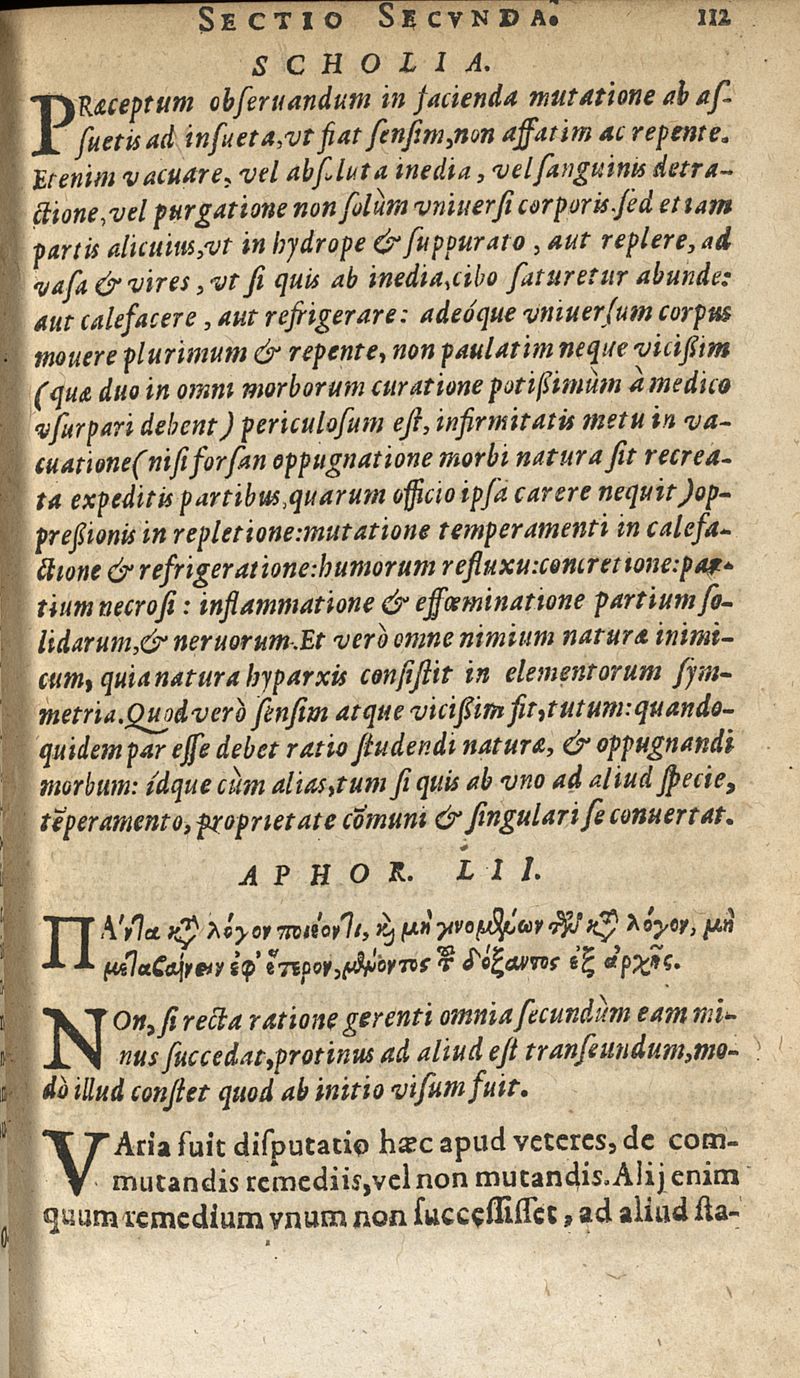 SECTIO SECVNDA. 112
SCHOLIA.
PRæceptum obseruandum in facienda mutatione ab as-
suetis ad insueta, vt fiat sensim, non affatim ac repente.
Etenim vacuare, vel absoluta inedia, vel sanguinis detra-
ctione, vel purgatione non solùm vniuersi corporis. sed etiam
partis alicuius, vt in hydrope & suppurato, aut replere, ad
vasa & vires, vt si quis ab inedia, cibo saturetur abunde:
aut calefacere, aut refrigerare: adeóque vniuersum corpus
mouere plurimum & repente, non paulatim neque vicißim
(quæ duo in omni morborum curatione potißimùm à medico
vsurpari debent) periculosum est, infirmitatis metu in va-
cuatione (nisi forsan oppugnatione morbi natura sit recrea-
ta expeditis partibus, quarum officio ipsa carere nequit) op-
preßionis in repletione: mutatione temperamenti in calefa-
ctione & refrigeratione: humorum refluxu: concretione: par-
tium necrosi: inflammatione & effœminatione partium so-
lidarum, & neruorum. Et verò omne nimium naturæ inimi-
cum, quia natura hyparxis consistit in elementorum sym-
metria. Quod verò sensim atque vicißim fit, tutum: quando-
quidem par esse debet ratio studendi naturæ, & oppugnandi
morbum: ídque cùm alias, tum si quis ab vno ad aliud specie,
tẽperamento, proprietate cõmuni & singulari se conuertat.
APHOR. LII.
ΠΆντα κτ̀ λόγον ποιέοντι, κ̀ μὴ γινομένων τῶν κτ̀ λόγον, μὴ
μεταβαίνειν ἐφ' ἕτερον, μένοντος τοῦ δόξαντος ἐξ ἀρχῆς.
NOn, si recta ratione gerenti omnia secundùm eam mi-
nus succedat, protinus ad aliud est transeundum, mo-
dò illud constet quod ab initio visum fuit.
VAria fuit disputatio hæc apud veteres, de com-
mutandis remediis, vel non mutandis. Alij enim
quum remedium vnum non successisset, ad aliud sta-